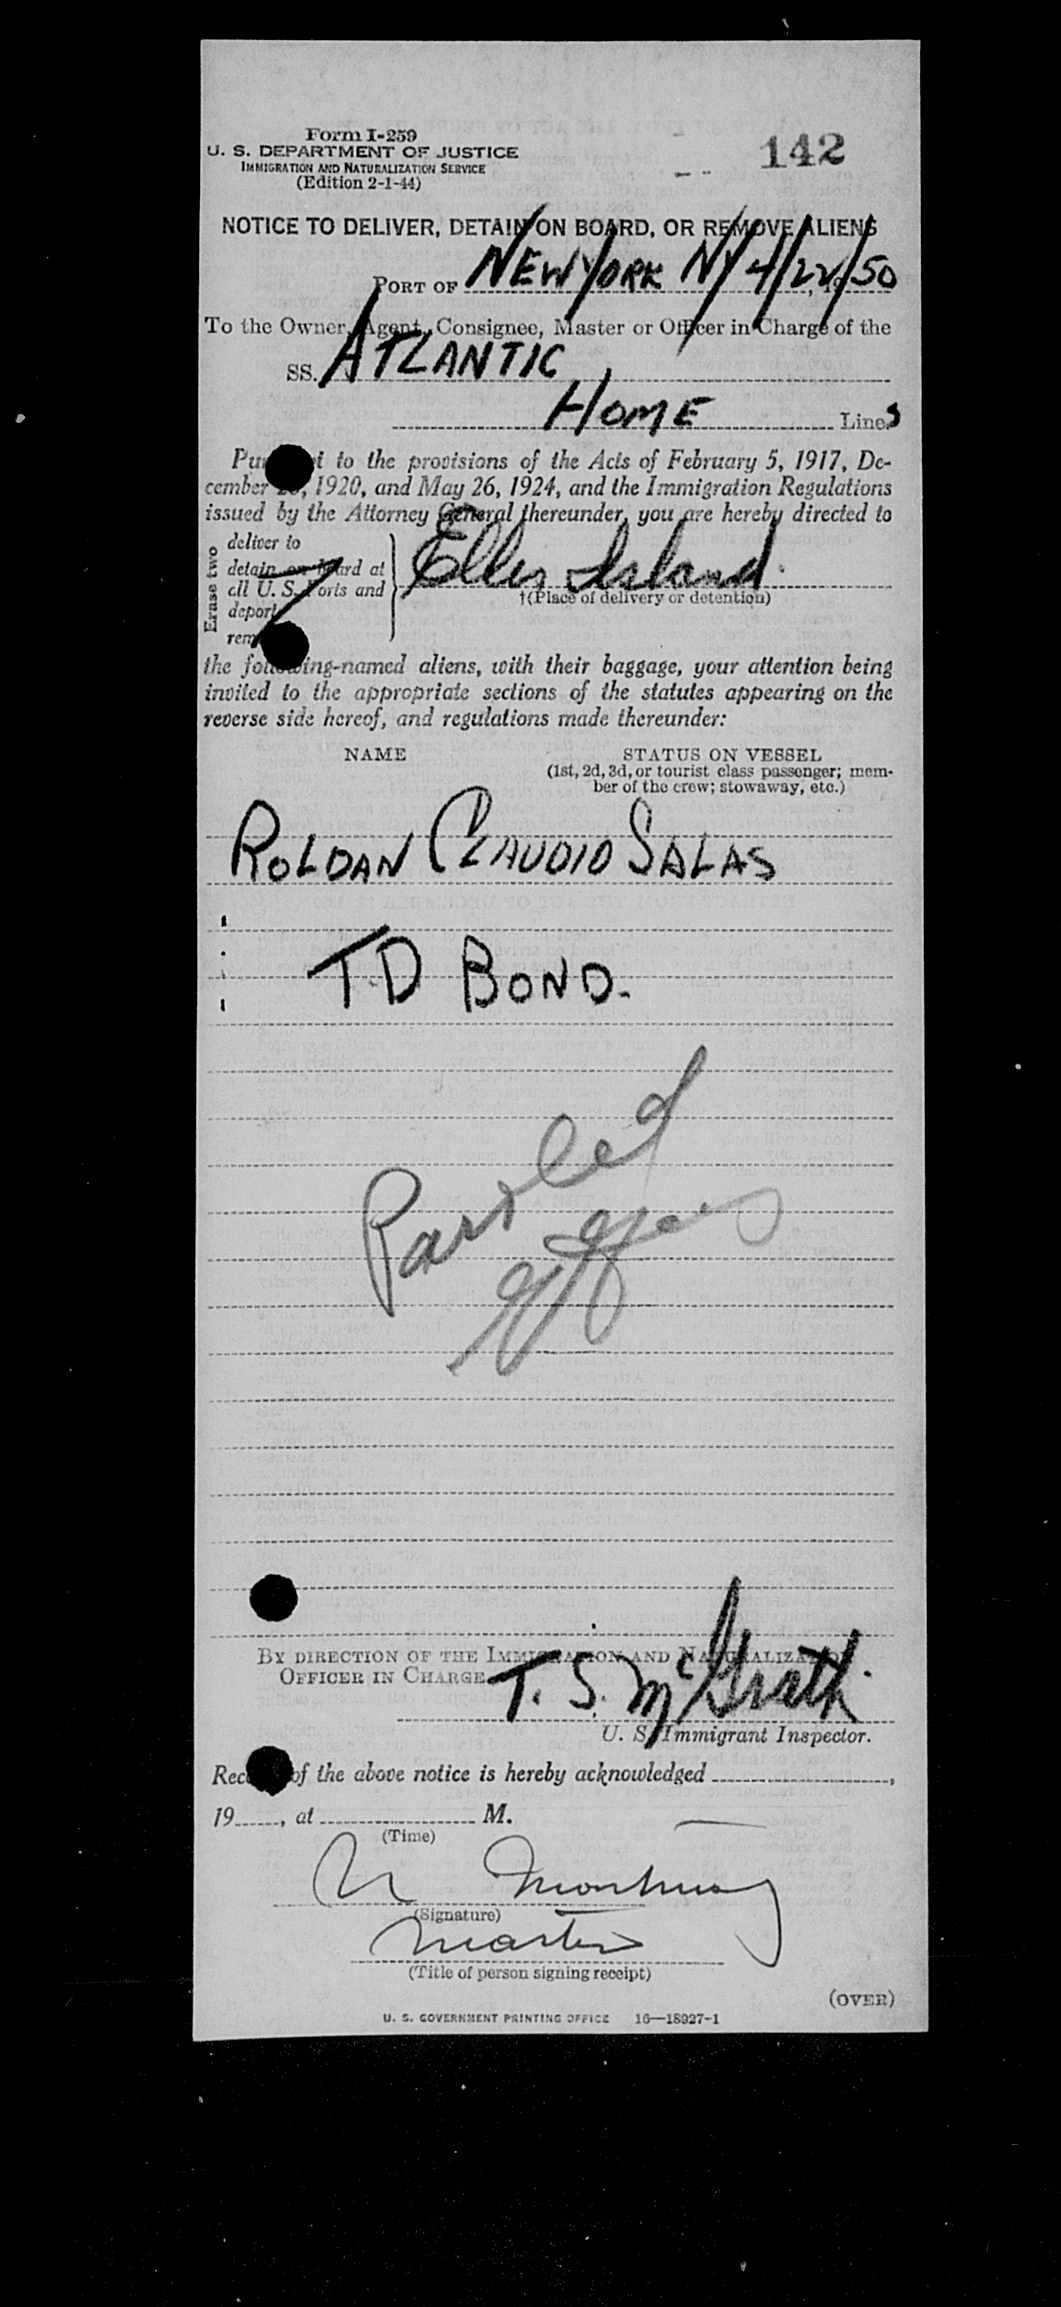 Form I-259
142
U. S. DEPARTMENT OF JUSTICE
IMMIGRATION AND NATURALIZATION SERVICE
(Edition 2-1-44)
NOTICE TO DELIVER, DETAIN ON BOARD, OR REMOVE ALIENS
PORT OF NEW YORK NY 4/22/50
To the Owner, Agent, Consignee, Master or Officer in Charge of the
SS. ATLANTIC
HOME Lines
to the provisions of the Acts of February 5, 1917, De-
cember 1920, and May 26, 1924, and the Immigration Regulations
issued by the Attorney General thereunder, you are hereby directed to
Erase two
deliver to
detain on board at
all U. S. Ports and
deport
Ellis Island.
†(Place of delivery or detention)
the following-named aliens, with their baggage, your attention being
invited to the appropriate sections of the statutes appearing on the
reverse side hereof, and regulations made thereunder:
NAME STATUS ON VESSEL
(1st, 2d, 3d, or tourist class passenger; mem-
ber of the crew; stowaway, etc.)
ROLDAN CLAUDIO SALAS
TD BOND.
Paroled
BY DIRECTION OF THE IMMIGRATION AND NATURALIZATION
OFFICER IN CHARGE
T. S. McGrath
U. S. Immigrant Inspector.
of the above notice is hereby acknowledged ,
19 , at M.
(Time)
(Signature)
Master
(Title of person signing receipt)
(OVER)
U. S. GOVERNMENT PRINTING OFFICE 16—18927-1